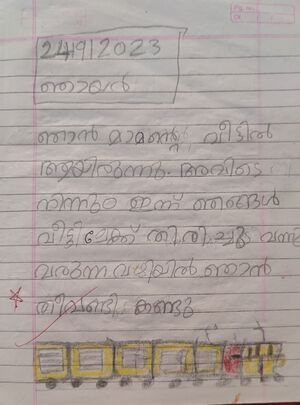 24/9/2023
ഞായർ
ഞാൻ മാമൻ്റെ വീട്ടിൽ
ആയിരുന്നു. അവിടെ
നിന്നും ഇന്ന് ഞങ്ങൾ
വീട്ടിലേക്ക് തിരിച്ചു വന്നു
വരുന്ന വഴിയിൽ ഞാൻ
തീവണ്ടി കണ്ടു